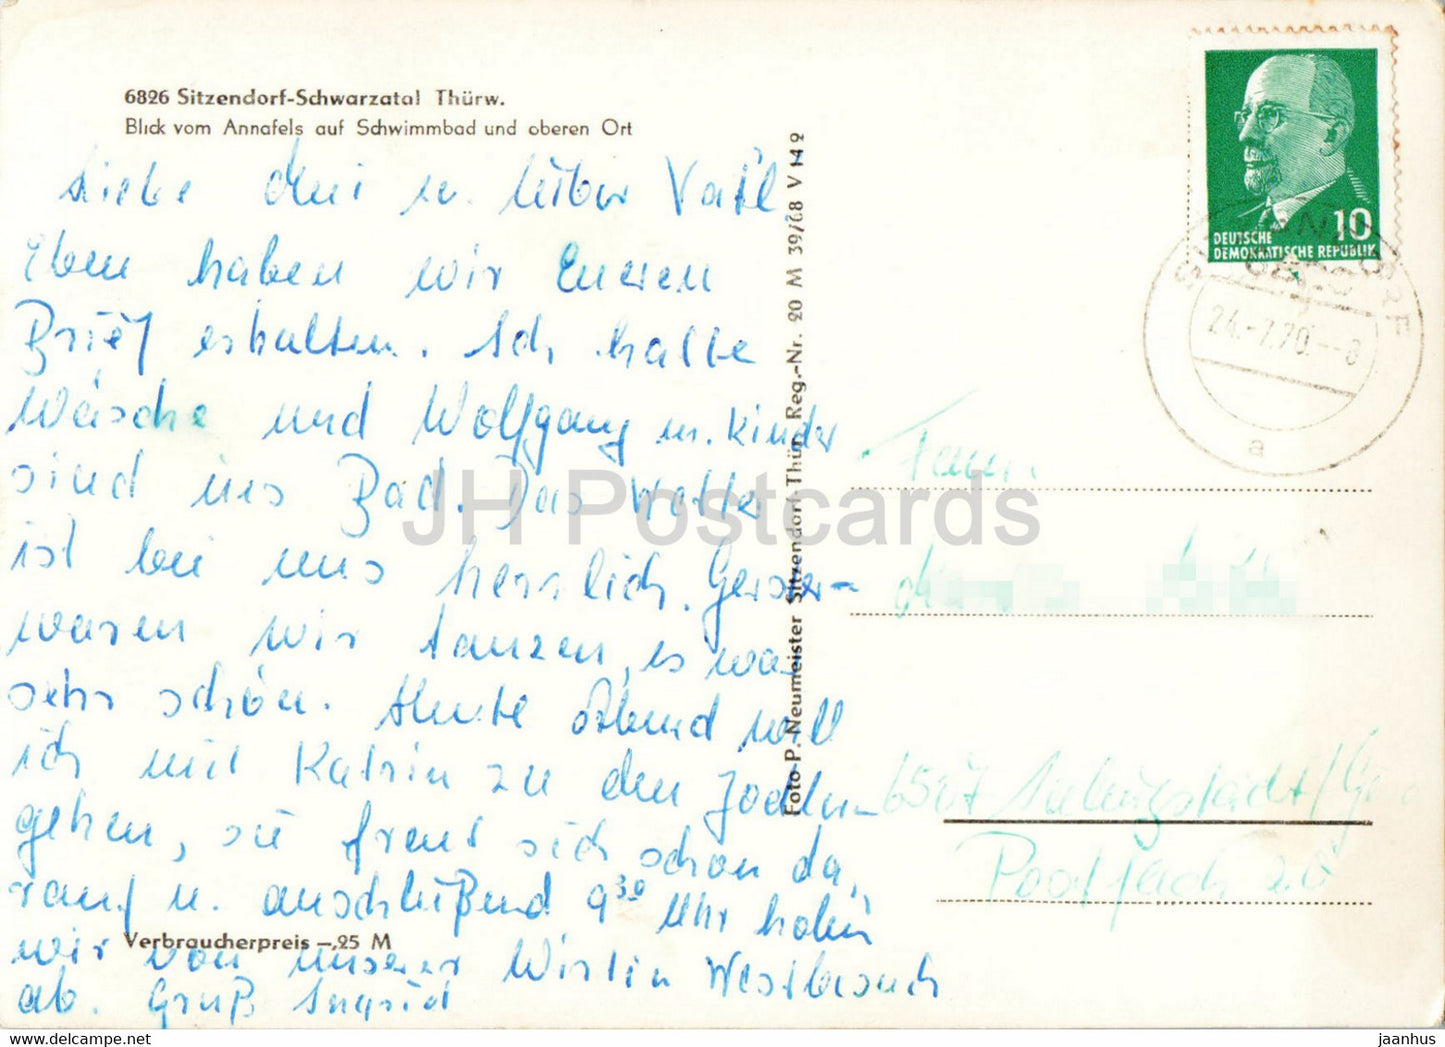 6826 Sitzendorf-Schwarzatal Thürw.
Blick vom Annafels auf Schwimmbad und oberen Ort
Liebe u. lieber Vati,
Eben haben wir Eueren
Brief erhalten. Ich halte
Wäsche und Wolfgang m. Kinder
sind ins Bad. Das Wetter
ist bei uns herrlich. Gestern
waren wir tanzen, es war
sehr schön. Heute Abend will
ich mit Katrin zu den
gehen, sie freut sich schon da,
rauf u. anschließend 9 30 Uhr holen
wir von unserer Wirtin Westbesuch
ab. Gruß Ingrid
Verbraucherpreis -,25 M
Foto-P. Neumeister Sitzendorf Thür. Reg.-Nr. 20 M 39/68 V 14 9
10
DEUTSCHE
DEMOKRATISCHE REPUBLIK
SITZENDORF
24.-7.70.--8
a
Fam.
6507 Seelingstädt/Gera
Postfach 20
JH Postcards
jaanhus - delcampe.net